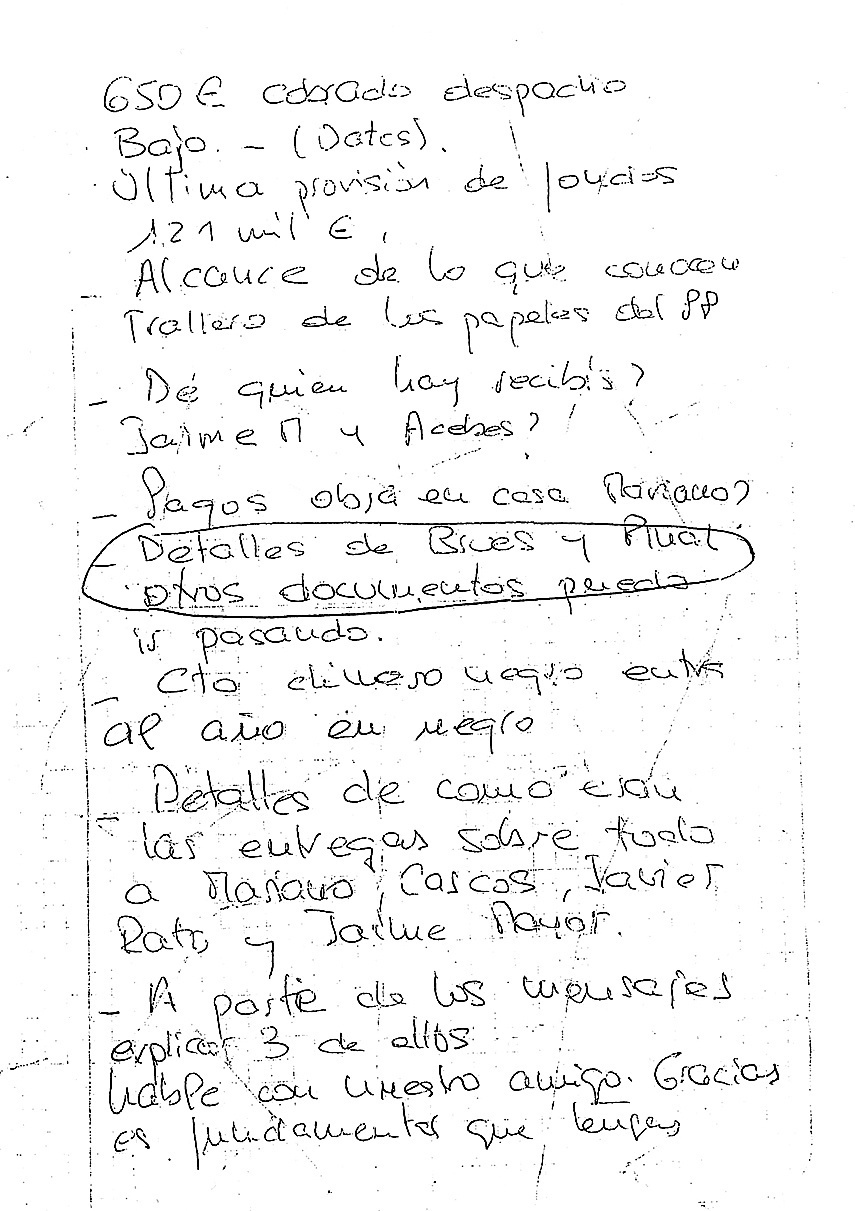 650 € cobrado despacho
Bajo. - (Datos).
Última provisión de fondos
121 mil €,
- Alcance de lo que conocen
Trallero de los papeles del PP
- De quien hay recibís?
Jaime M y Acebes?
- Pagos obra en casa Mariano?
- Detalles de Bives y
otros documentos pueda
ir pasando.
- Cto dinero negro entra
al año en negro
- Detalles de como eran
las entregas sobre todo
a Mariano, Cascos, Javier
Rato y Jaime Mayor.
- A parte de los mensajes
explicar 3 de ellos
hable con nuestro amigo. Gracias
es fundamental que tengas